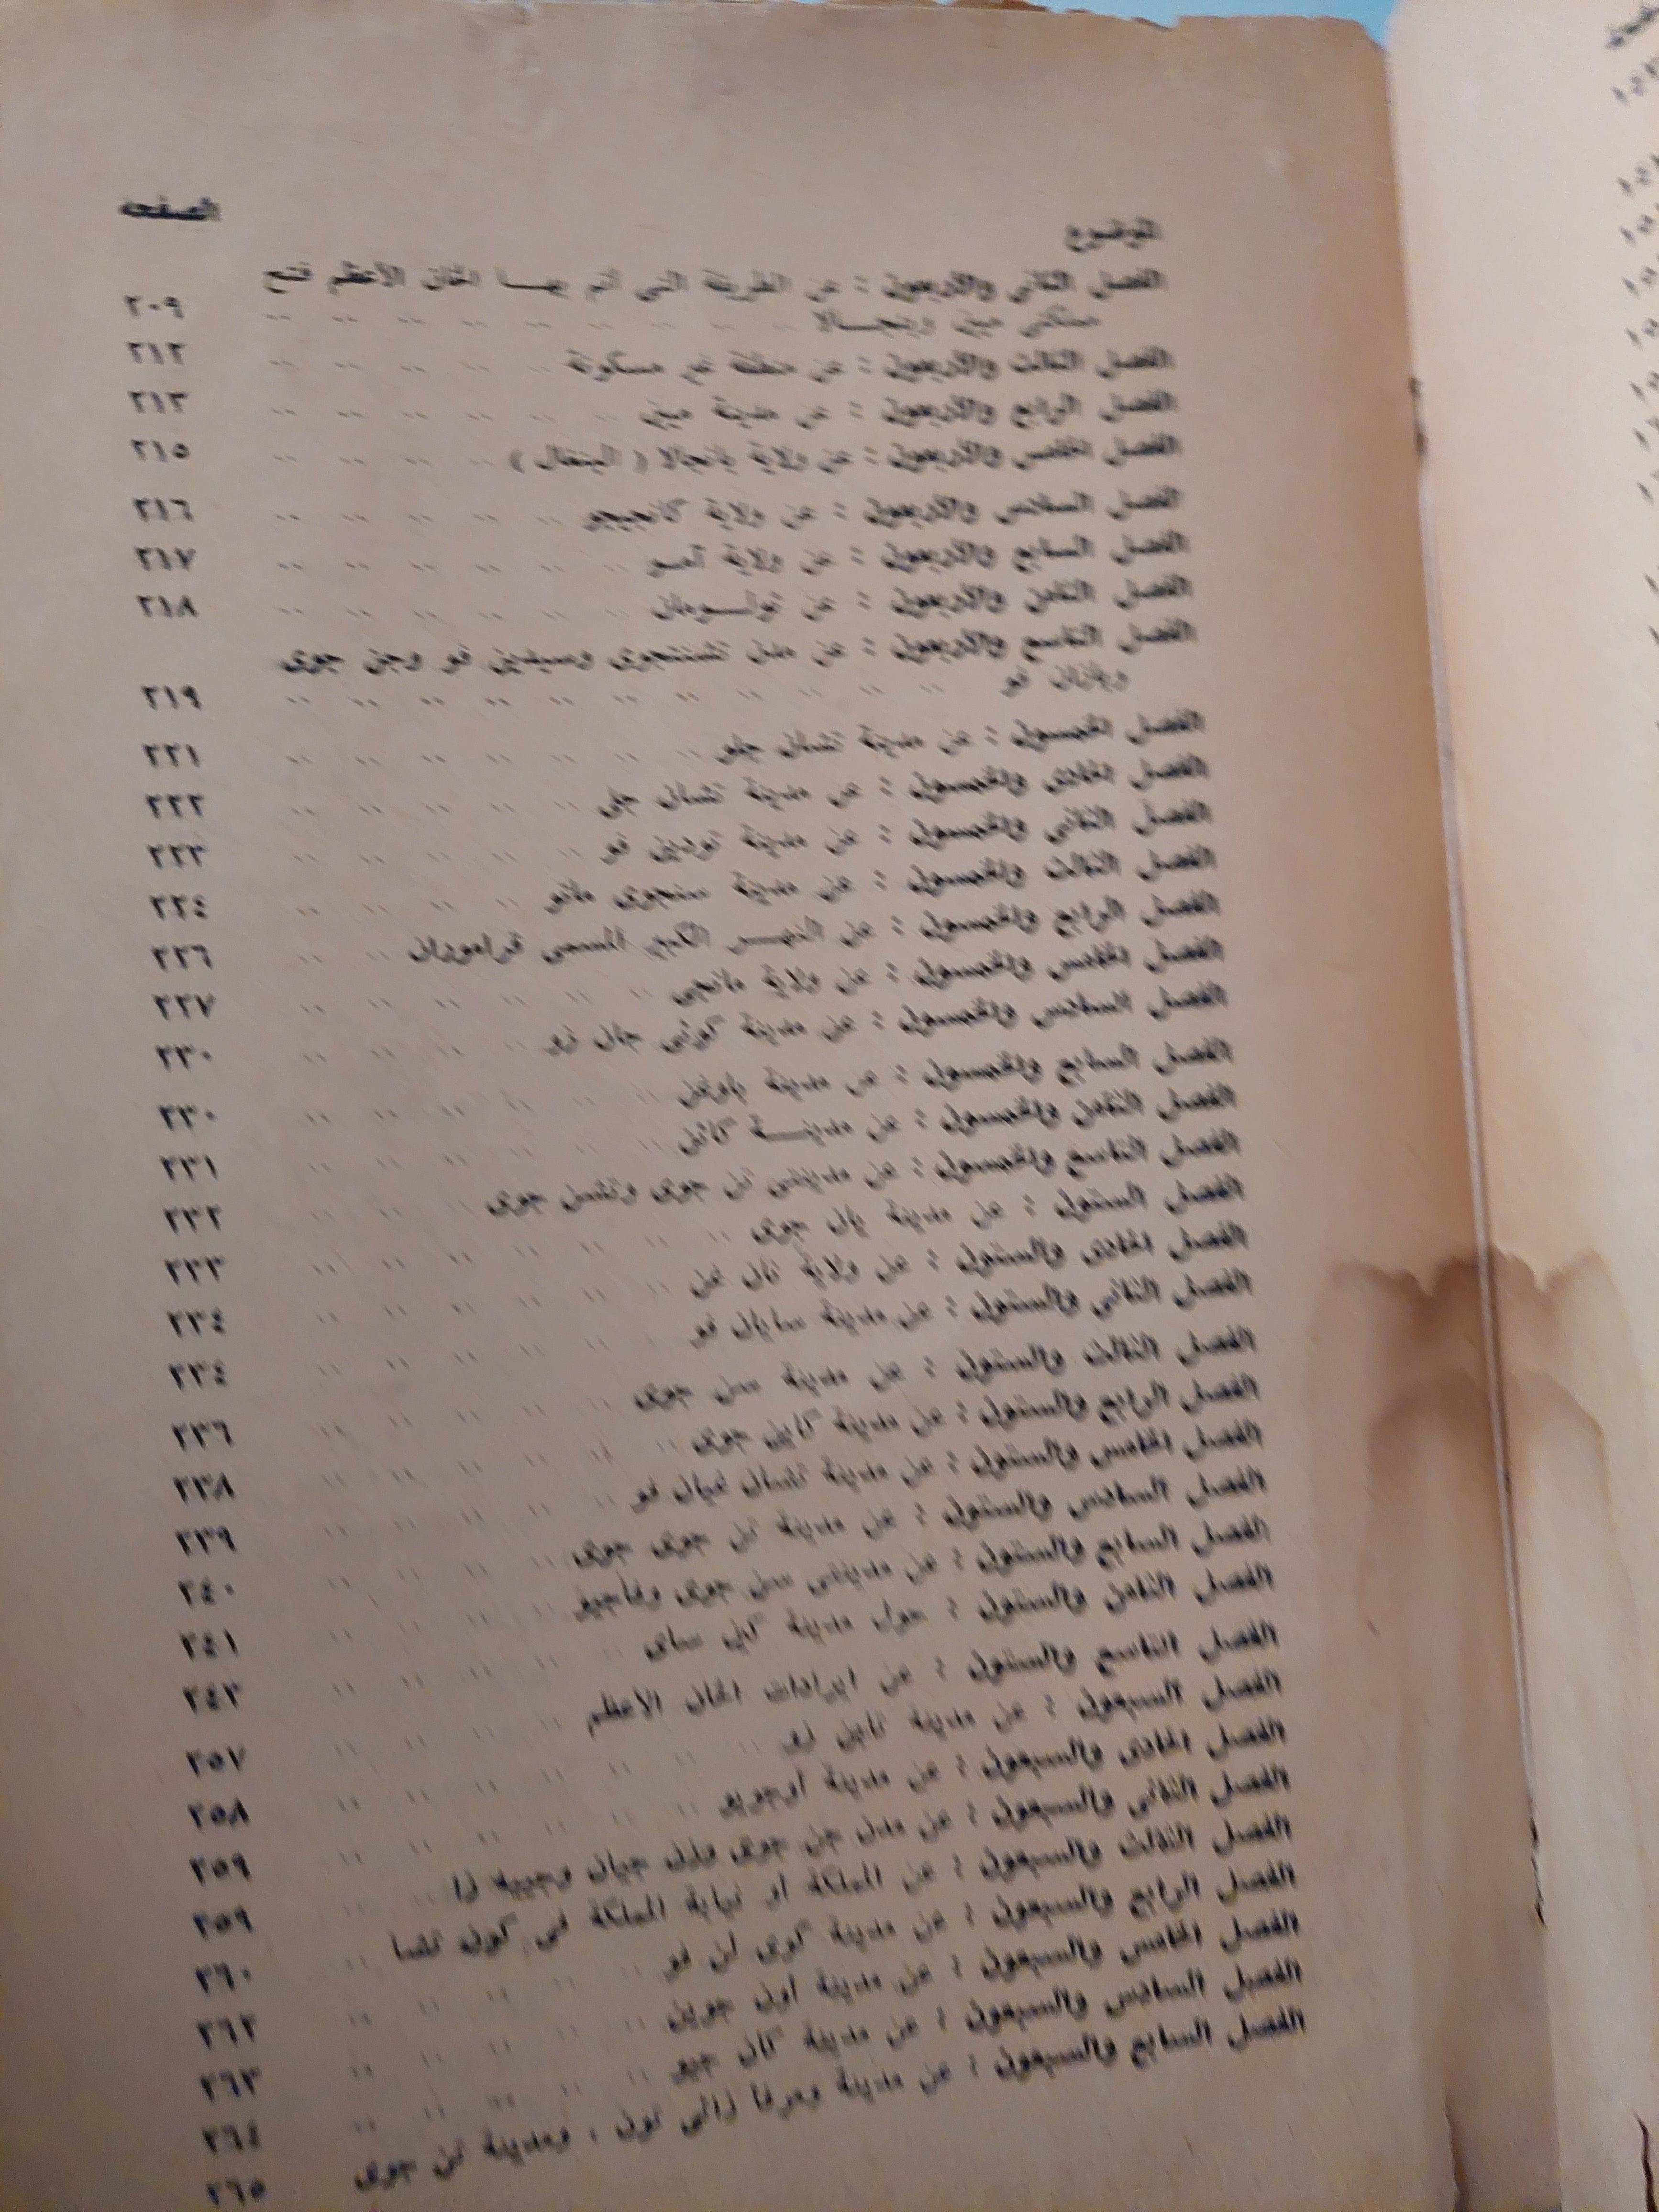 الموضوع الصفحة
الفصل الثانى والأربعون : عن الطريقة التى أتم بهـــا الخان الأعظم فتح
مملكتى ميين وبنجـــالا ٢٠٩
الفصل الثالث والأربعون : عن منطقة غير مسكونة ٢١٢
الفصل الرابع والأربعون : عن مدينة ميين ٢١٣
الفصل الخامس والأربعون : عن ولاية بانجالا ( البنغال ) ٢١٥
الفصل السادس والأربعون : عن ولاية كانجيجو ٢١٦
الفصل السابع والأربعون : عن ولاية آمـو ٢١٧
الفصل الثامن والأربعون : عن تولـــومان ٢١٨
الفصل التاسع والأربعون : عن مدن تشنتجوى وسيدين فو وجن جوى
وبازان فو ٢١٩
الفصل الخمسون : عن مدينة تشان جلو ٢٢١
الفصل الحادى والخمسون : عن مدينة تشان جلى ٢٢٢
الفصل الثانى والخمسون : عن مدينة تودين فو ٢٢٣
الفصل الثالث والخمسون : عن مدينة سنجوى ماتو ٢٢٤
الفصل الرابع والخمسون : عن النهـــر الكبير المسمى قراموران ٢٢٦
الفصل الخامس والخمسون : عن ولاية مانجى ٢٢٧
الفصل السادس والخمسون : عن مدينة كوئى جان زو ٢٣٠
الفصل السابع والخمسون : عن مدينة باوغن ٢٣٠
الفصل الثامن والخمسون : عن مدينـــة كائن ٢٣١
الفصل التاسع والخمسون : عن مدينتى تن جوى وتشن جوى ٢٣٢
الفصل الستون : عن مدينة يان جوى ٢٣٣
الفصل الحادى والستون : عن ولاية نان غن ٢٣٤
الفصل الثانى والستون : عن مدينة سايان فو ٢٣٤
الفصل الثالث والستون : عن مدينة سن جوى ٢٣٦
الفصل الرابع والستون : عن مدينة كاين جوى ٢٣٨
الفصل الخامس والستون : عن مدينة تشان غيان فو ٢٣٩
الفصل السادس والستون : عن مدينة تن جوى جوى ٢٤٠
الفصل السابع والستون : عن مدينتى سن جوى وفاجيو ٢٤١
الفصل الثامن والستون : حول مدينة كين ساى ٢٤٣
الفصل التاسع والستون : عن ايرادات الخان الأعظم ٢٥٧
الفصل السبعون : عن مدينة تابن زو ٢٥٨
الفصل الحادى والسبعون : عن مدينة أوجويو ٢٥٩
الفصل الثانى والسبعون : عن مدن جن جوى وزن جيان وجييه زا ٢٥٩
الفصل الثالث والسبعون : عن المملكة أو نيابة المملكة فى كون تشا ٢٦٠
الفصل الرابع والسبعون : عن مدينة كوى لن فو ٢٦٢
الفصل الخامس والسبعون : عن مدينة أون جوين ٢٦٣
الفصل السادس والسبعون : عن مدينة كان جيو ٢٦٤
الفصل السابع والسبعون : عن مدينة ومرفأ زائى تون ، ومدينة تن جوى ٢٦٥